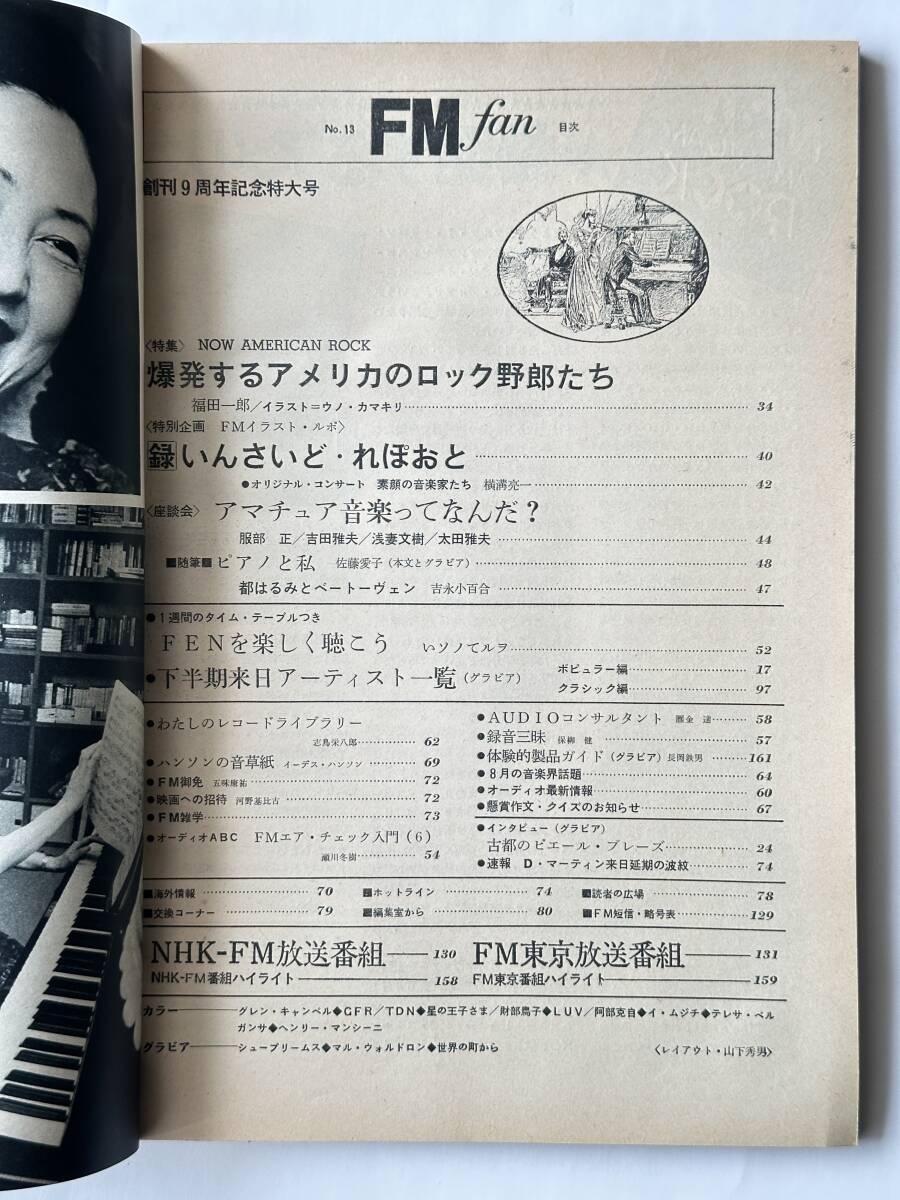 No.13 FM fan 目次
創刊9周年記念特大号
〈特集〉 NOW AMERICAN ROCK
爆発するアメリカのロック野郎たち
福田一郎／イラスト＝ウノ・カマキリ 34
〈特別企画 FMイラスト・ルポ〉
録いんさいど・れぽおと 40
●オリジナル・コンサート 素顔の音楽家たち 横溝亮一 42
〈座談会〉 アマチュア音楽ってなんだ？
服部 正／吉田雅夫／浅妻文樹／太田雅夫 44
■随筆■ピアノと私 佐藤愛子（本文とグラビア） 48
都はるみとベートーヴェン 吉永小百合 47
●1週間のタイム・テーブルつき
FENを楽しく聴こう いソノてルヲ 52
●下半期来日アーティスト一覧（グラビア） ポピュラー編 17
クラシック編 97
●わたしのレコードライブラリー
志鳥栄八郎 62
●ハンソンの音草紙 イーデス・ハンソン 69
●FM御免 五味康祐 72
●映画への招待 河野基比古 72
●FM雑学 73
●オーディオABC FMエア・チェック入門（6）
瀬川冬樹 54
●AUDIOコンサルタント 雁金 達 58
●録音三昧 保柳 健 57
●体験的製品ガイド（グラビア） 長岡鉄男 161
●8月の音楽界話題 64
●オーディオ最新情報 60
●懸賞作文・クイズのお知らせ 67
●インタビュー（グラビア）
古都のピエール・ブレーズ 24
●速報 D・マーティン来日延期の波紋 74
■海外情報 70
■ホットライン 74
■読者の広場 78
■交換コーナー 79
■編集室から 80
■FM短信・略号表 129
NHK-FM放送番組 130
FM東京放送番組 131
NHK-FM番組ハイライト 158
FM東京番組ハイライト 159
カラー グレン・キャンベル◆GFR／TDN◆星の王子さま／財部鳥子◆LUV／阿部克自◆イ・ムジチ◆テレサ・ベル
ガンサ◆ヘンリー・マンシーニ
グラビア シュープリームス◆マル・ウォルドロン◆世界の町から 〈レイアウト・山下秀男〉